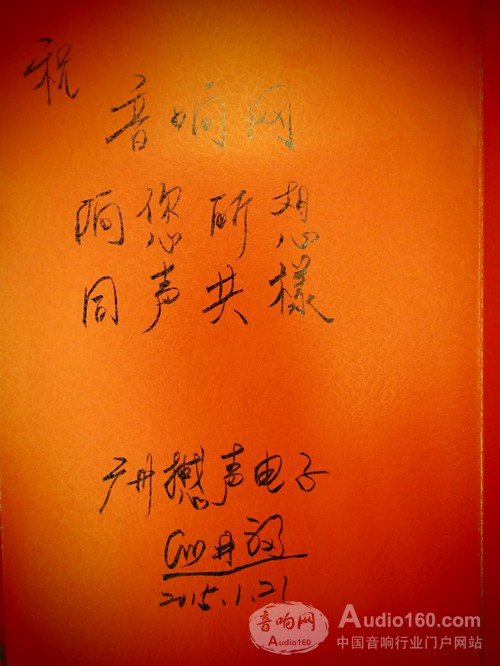 祝
音响网
响您所想
同声共樣
广州撼声电子
2015.1.21
音响网
Audio160
Audio160.com
中国音响行业门户网站